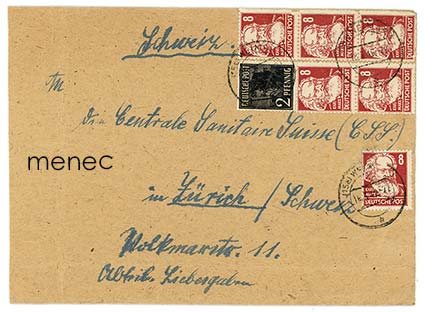 Schweiz
8 DEUTSCHE POST
8 DEUTSCHE POST
8 DEUTSCHE POST
An
DEUTSCHE POST 2 PFENNIG
8 DEUTSCHE POST
8 DEUTSCHE POST
die Centrale Sanitaire Suisse (C.S.S.)
menec
8 DEUTSCHE POST
in Zürich / Schweiz
11.
Liebesgaben